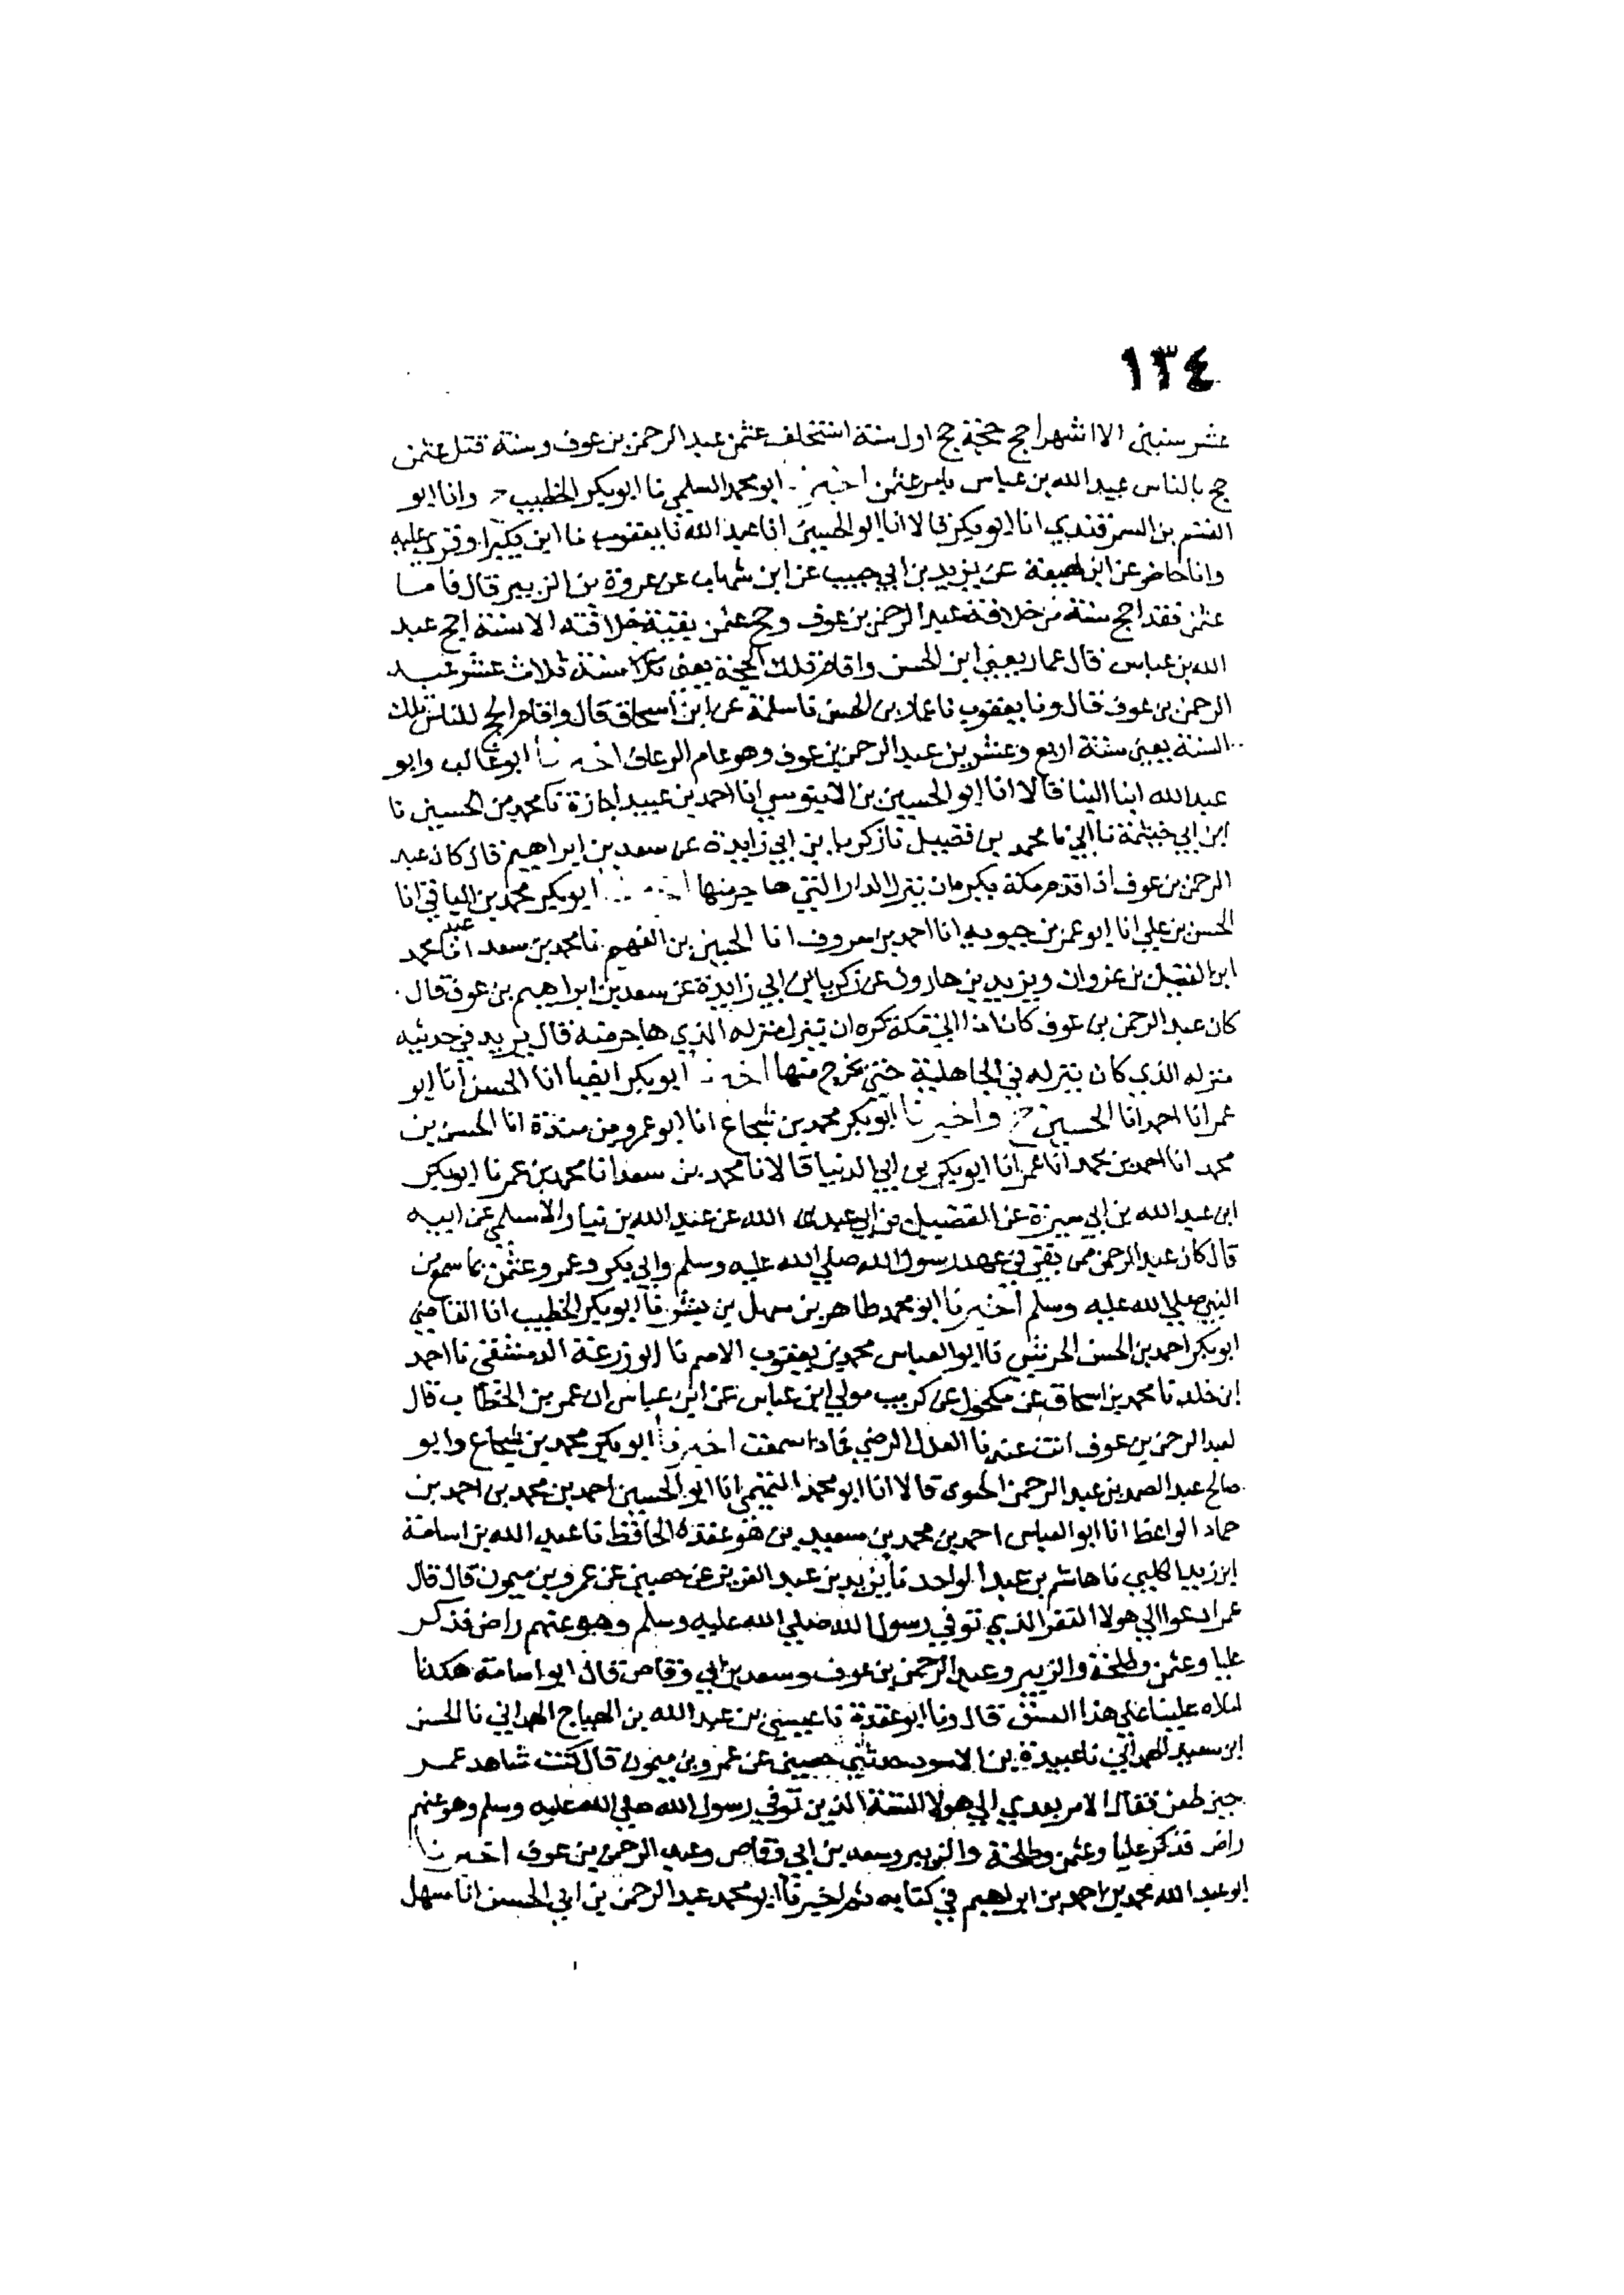 ١٣٤
عشر سنين الا اشهرا حج حجة حج اول سنة استخلف عثمن عبد الرحمن بن عوف وسنة قتل عثمن
حج بالناس عبد الله بن عباس بامر عثمن اخبرنا ابو محمد السلمي نا ابو بكر الخطيب ح وانا ابو
القسم بن السمرقندي انا ابو بكر قالا انا ابو الحسين انا عبد الله نا يعقوب نا ابن بكير او قرئ عليه
وانا حاضر عن ابن لهيعة عن يزيد بن ابي حبيب عن ابن شهاب عن عروة بن الزبير قال فاما
عثمن فقد احج سنة من خلافته عبد الرحمن بن عوف وحج عثمن بقية خلافته الا سنة احج عبد
الله بن عباس قال عمار يعني ابن الحسن واقام تلك الحجة يعني سنة ثلاث عشر عبد
الرحمن بن عوف قال ونا يعقوب نا عمار بن الحسن نا سلمة عن ابن اسحاق قال واقام الحج للناس تلك
السنة يعني سنة اربع وعشرين عبد الرحمن بن عوف وهو عام الرعاف اخبرنا ابو غالب وابو
عبد الله ابنا البنا قالا انا ابو الحسين بن الابنوسي انا احمد بن عبيد اجازة نا محمد بن الحسين نا
ابن ابي خيثمة نا ابي نا محمد بن فضيل نا زكريا بن ابي زايدة عن سعد بن ابراهيم قال كان عبد
الرحمن بن عوف اذا قدم مكة يكره ان ينزل الدار التي هاجر منها اخبرنا ابو بكر محمد بن الباقي انا
الحسن بن علي انا ابو عمر بن حيويه انا احمد بن معروف انا الحسين بن الفهم نا محمد بن سعد انا محمد
ابن الفضيل بن غزوان ويزيد بن هارون عن زكريا بن ابي زايدة عن سعد بن ابراهيم بن عوف قال
كان عبد الرحمن بن عوف كان اذا اتى مكة كره ان ينزل منزله الذي هاجر منه قال يزيد في حديثه
منزله الذي كان ينزله في الجاهلية حتى يخرج منها اخبرنا ابو بكر ايضا انا الحسن انا ابو
عمر انا احمد انا الحسين ح واخبرنا ابو بكر محمد بن شجاع انا ابو عمرو بن مندة انا الحسن بن
محمد انا احمد بن محمد انا عمر انا ابو بكر بن ابي الدنيا قالا نا محمد بن سعد انا محمد بن عمر نا ابو بكر
ابن عبد الله بن ابي سبرة عن الفضيل بن ابي عبد الله عن عبد الله بن نيار الاسلمي عن ابيه
قال كان عبد الرحمن ممن يفتي في عهد رسول الله صلي الله عليه وسلم وابي بكر وعمر وعثمن بما سمع من
النبي صلي الله عليه وسلم اخبرنا ابو محمد طاهر بن سهل بن بشر نا ابو بكر الخطيب انا القاضي
ابو بكر احمد بن الحسن الحرشي نا ابو العباس محمد بن يعقوب الاصم نا ابو زرعة الدمشقي نا احمد
ابن خلد نا محمد بن اسحاق عن مكحول عن كريب مولي ابن عباس عن ابن عباس ان عمر بن الخطاب قال
لعبد الرحمن بن عوف انت عندنا العدل الرضي فماذا سمعت اخبرنا ابو بكر محمد بن شجاع وابو
صالح عبد الصمد بن عبد الرحمن الحنوي قالا انا ابو محمد التميمي انا ابو الحسين احمد بن محمد بن احمد بن
حماد الواعظ انا ابو العباس احمد بن محمد بن سعيد بن هو عقدة الحافظ نا عبد الله بن اسامة
ابن زيد الكلبي نا هاشم بن عبد الواحد نا يزيد بن عبد العزيز عن حصين عن عمرو بن ميمون قال قال
عمر ادعوا الي هولا النفر الذي توفي رسول الله صلي الله عليه وسلم وهو عنهم راض فذكر
عليا وعثمن وطلحة والزبير وعبد الرحمن بن عوف وسعد بن ابي وقاص قال ابو اسامة هكذا
املاه علينا علي هذا النسق قال ونا ابو عقدة نا عيسى بن عبد الله بن الهياج الهمداني نا الحسن
ابن سعيد الهمداني نا عبيدة بن الاسود حدثني حصين عن عمرو بن ميمون قال كنت شاهد عمر
حين طعن فقال الامر بعدي الي هولا الستة الذين توفي رسول الله صلي الله عليه وسلم وهو عنهم
راض فذكر عليا وعثمن وطلحة والزبير وسعد بن ابي وقاص وعبد الرحمن بن عوف اخبرنا
ابو عبد الله محمد بن احمد بن ابراهيم في كتابه ثم اخبرنا ابو محمد عبد الرحمن بن ابي الحسن انا سهل